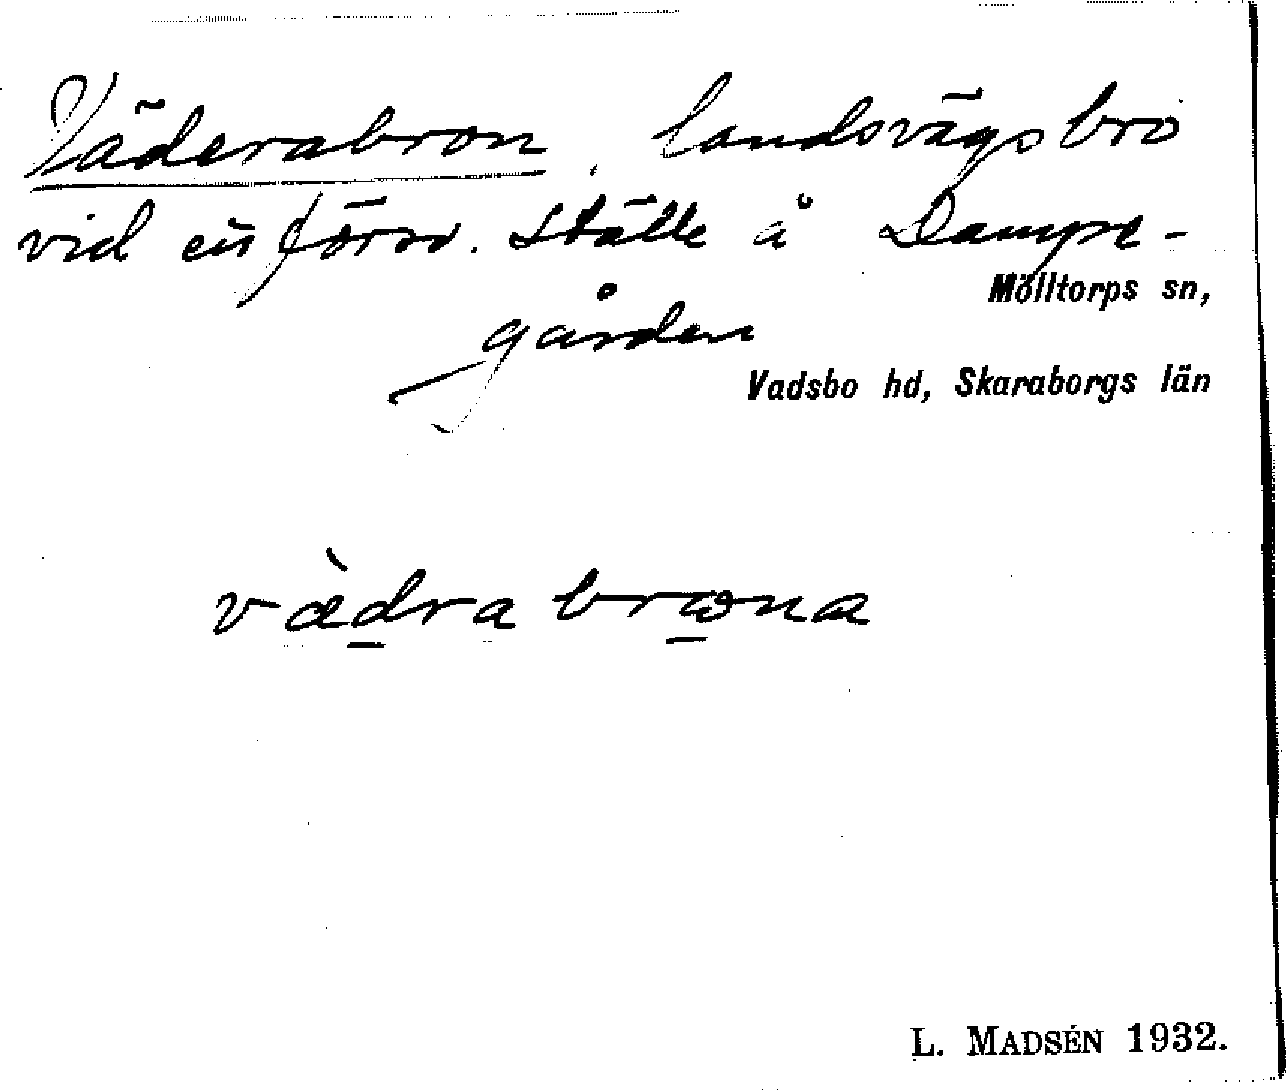 Väderabron, landsvägsbro
vid en försv. ställe å Dampe-
Mölltorps sn,
gården
Vadsbo hd, Skaraborgs län
væ̀dra brωna
L. MADSÉN 1932.